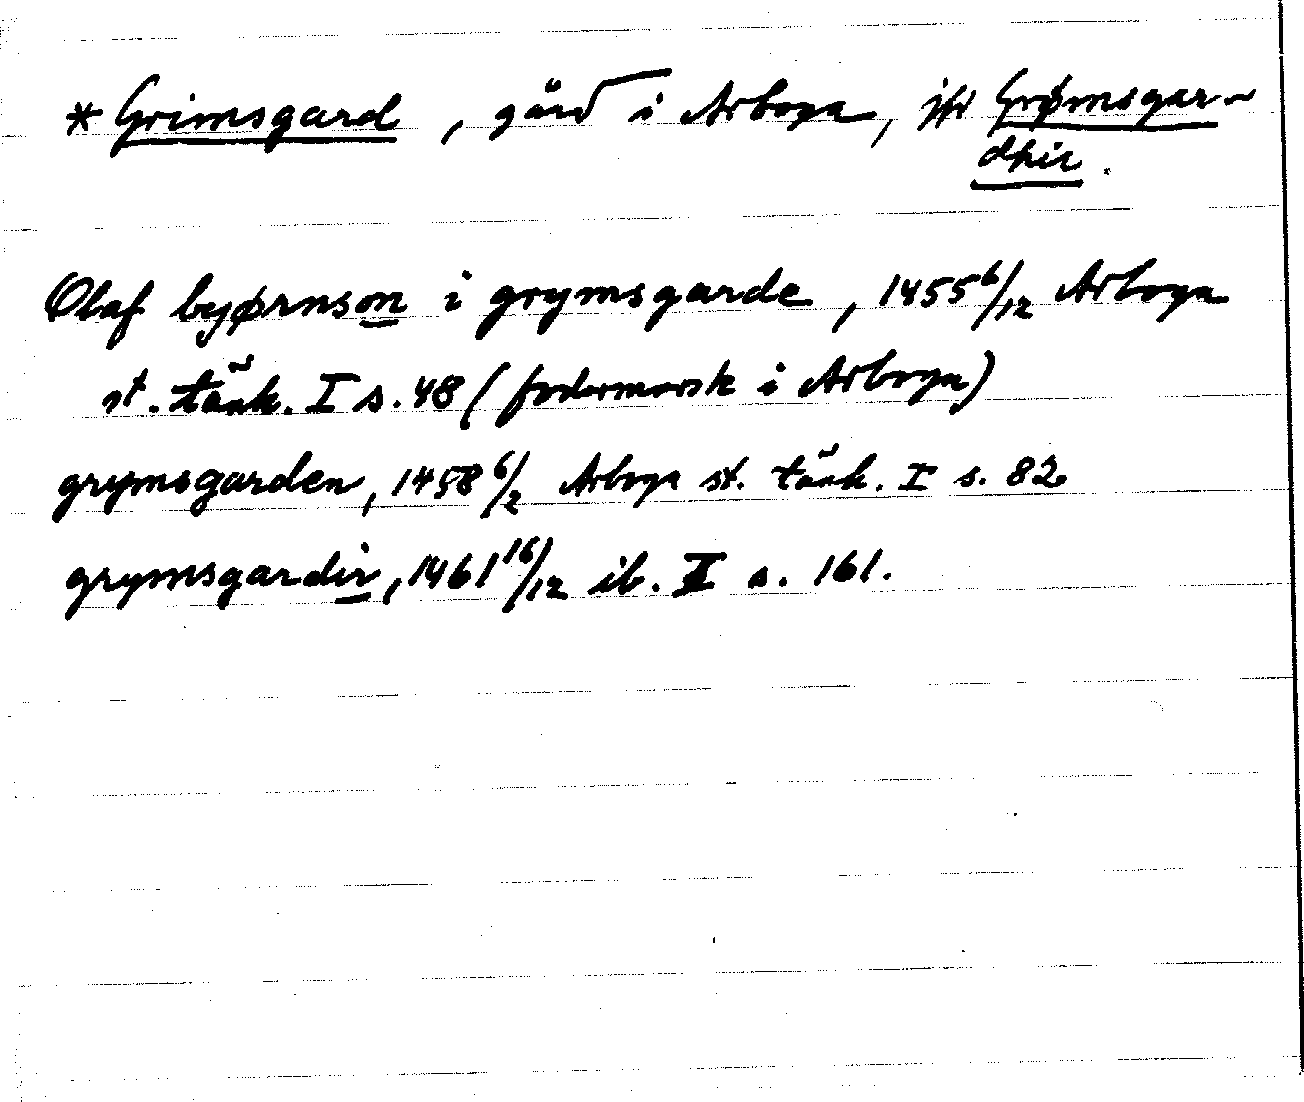 * Grimsgard , gård i Arboga, jfr Grømsgar-
dhir.
Olaf byørnson i grymsgarde, 1455 6/12 Arboga
st. tänk. I s. 48 (fodermarsk i Arboga)
grymsgarden, 1458 6/2 Arboga st. tänk. I s. 82
grymsgardir, 1461 16/12 ib. I s. 161.